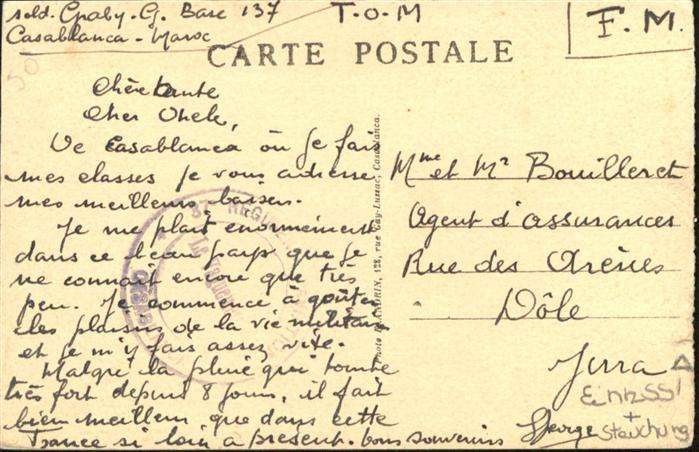 sold. Graby. G. Base 137
Casablanca - Maroc
T.O.M
F.M.
CARTE POSTALE
Chère tante
Cher Oncle,
De Casablanca où je fais
mes classes je vous adresse
mes meilleurs baisers.
Je me plait enormement
dans ce beau pays que je
ne connait encore que très
peu. Je commence à goûter
les plaisirs de la vie militaire
et je m'y fais assez vite.
Malgré la pluie qui tombe
très fort depuis 8 jours, il fait
bien meilleur que dans cette
France si loin a présent. bons souvenirs
George
Mme et Mr Bouilleret
Agent d'assurances
Rue des Arènes
Dôle
Jura
128, rue Gay-Lussac, Casablanca.